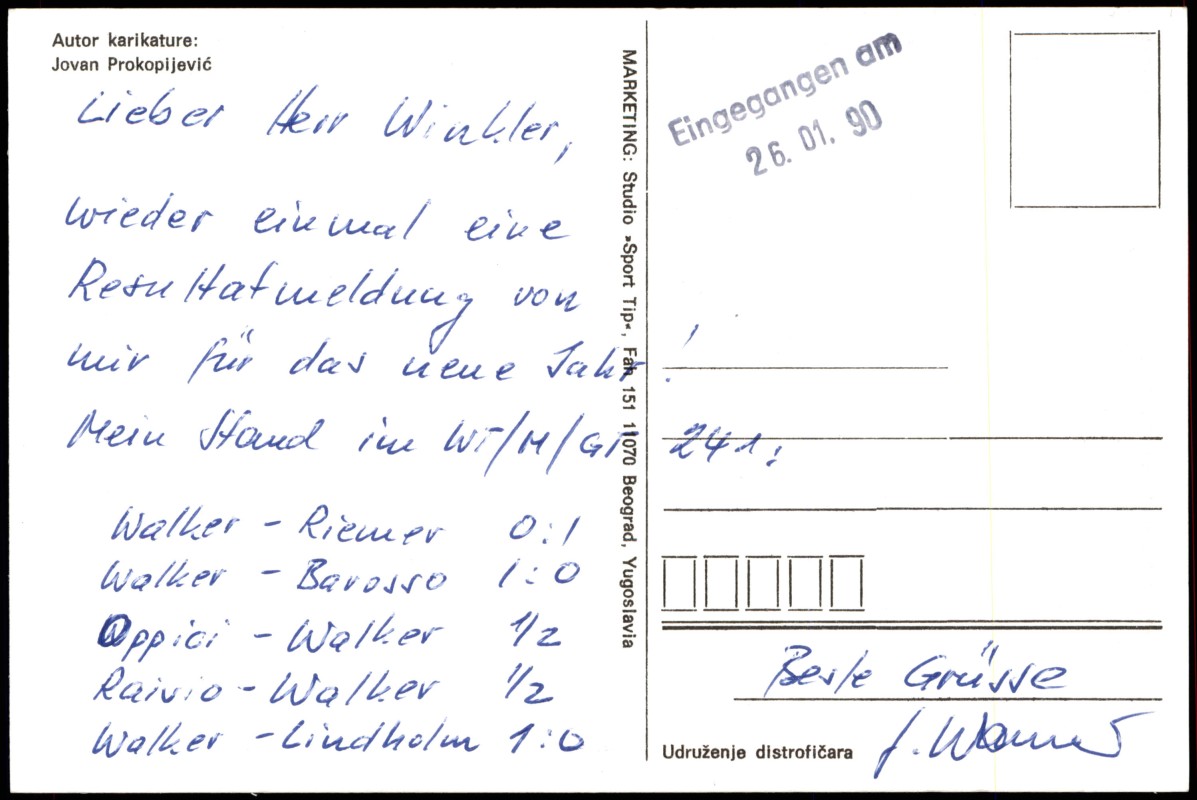 Autor karikature:
Jovan Prokopijević
Lieber Herr Winkler,
wieder einmal eine
Resultatmeldung von
mir für das neue Jahr!
Mein Stand im WT/M/GT 241:
Walker - Riemer 0:1
Walker - Barosso 1:0
Oppici - Walker 1/2
Raivio - Walker 1/2
Walker - Lindholm 1:0
MARKETING: Studio »Sport Tip«, Fah 151 11070 Beograd, Yugoslavia
Eingegangen am
26. 01. 90
Beste Grüsse
Udruženje distrofičara